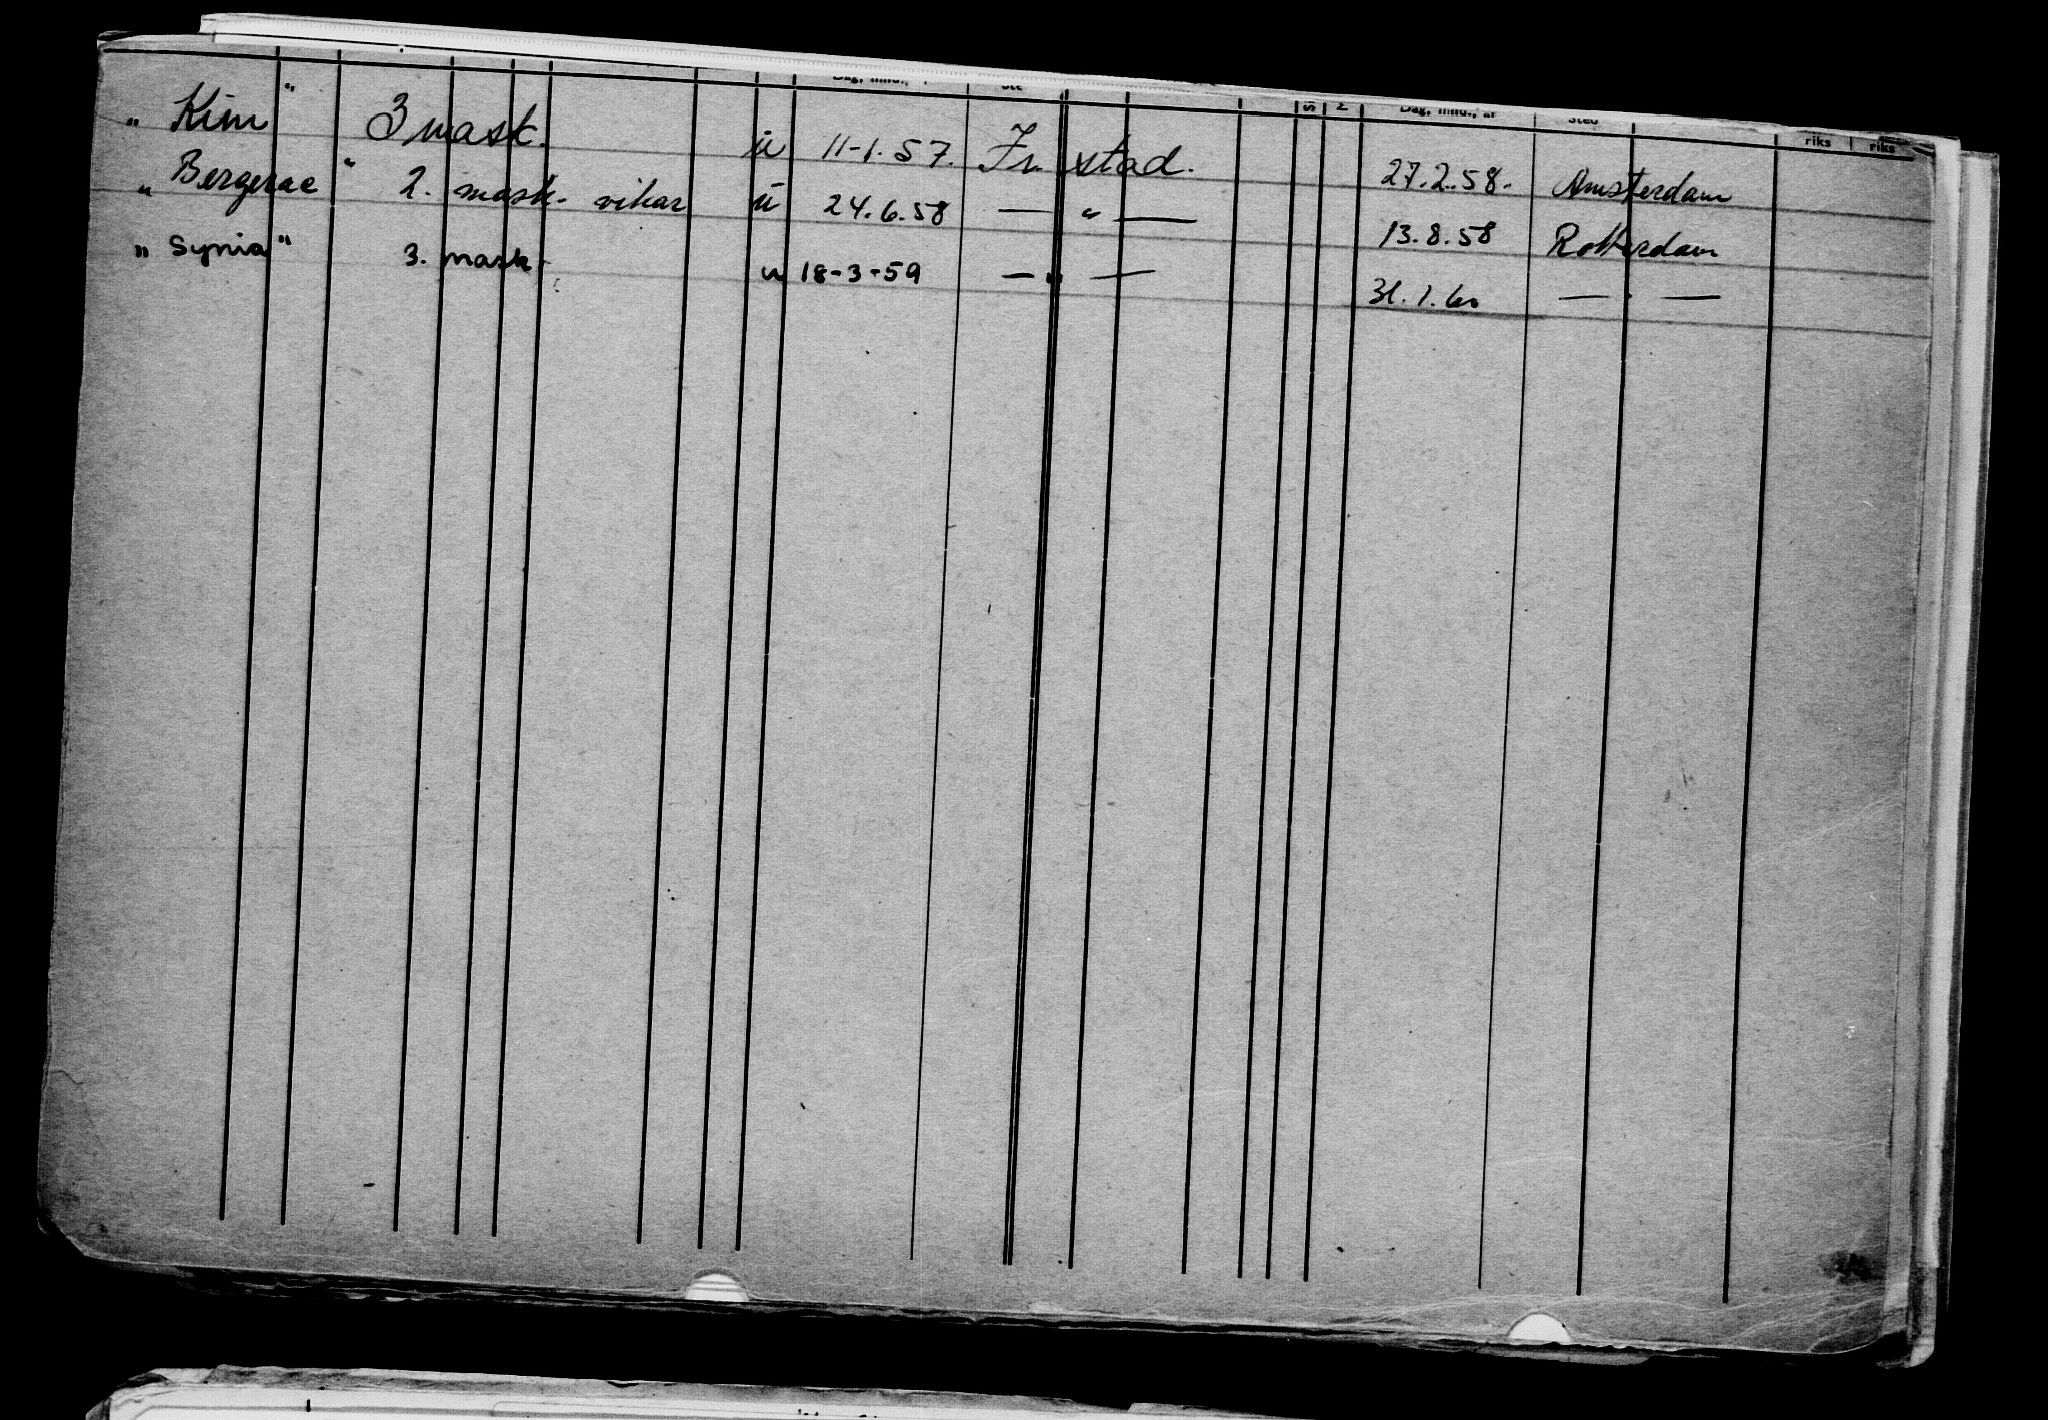 Dag, mnd., Ste S N Dag, mnd., år Sted riks riks
„ Kim " 3 mask. u 11-1.57. Fr. stad. 27.2.58. Amsterdam
„ Bergerac " 2. mask. vikar u 24.6.58 — " — 13.8.58 Rotterdam
„ Synia " 3. mask. u 18-3-59 — " — 31.1.60 — " —